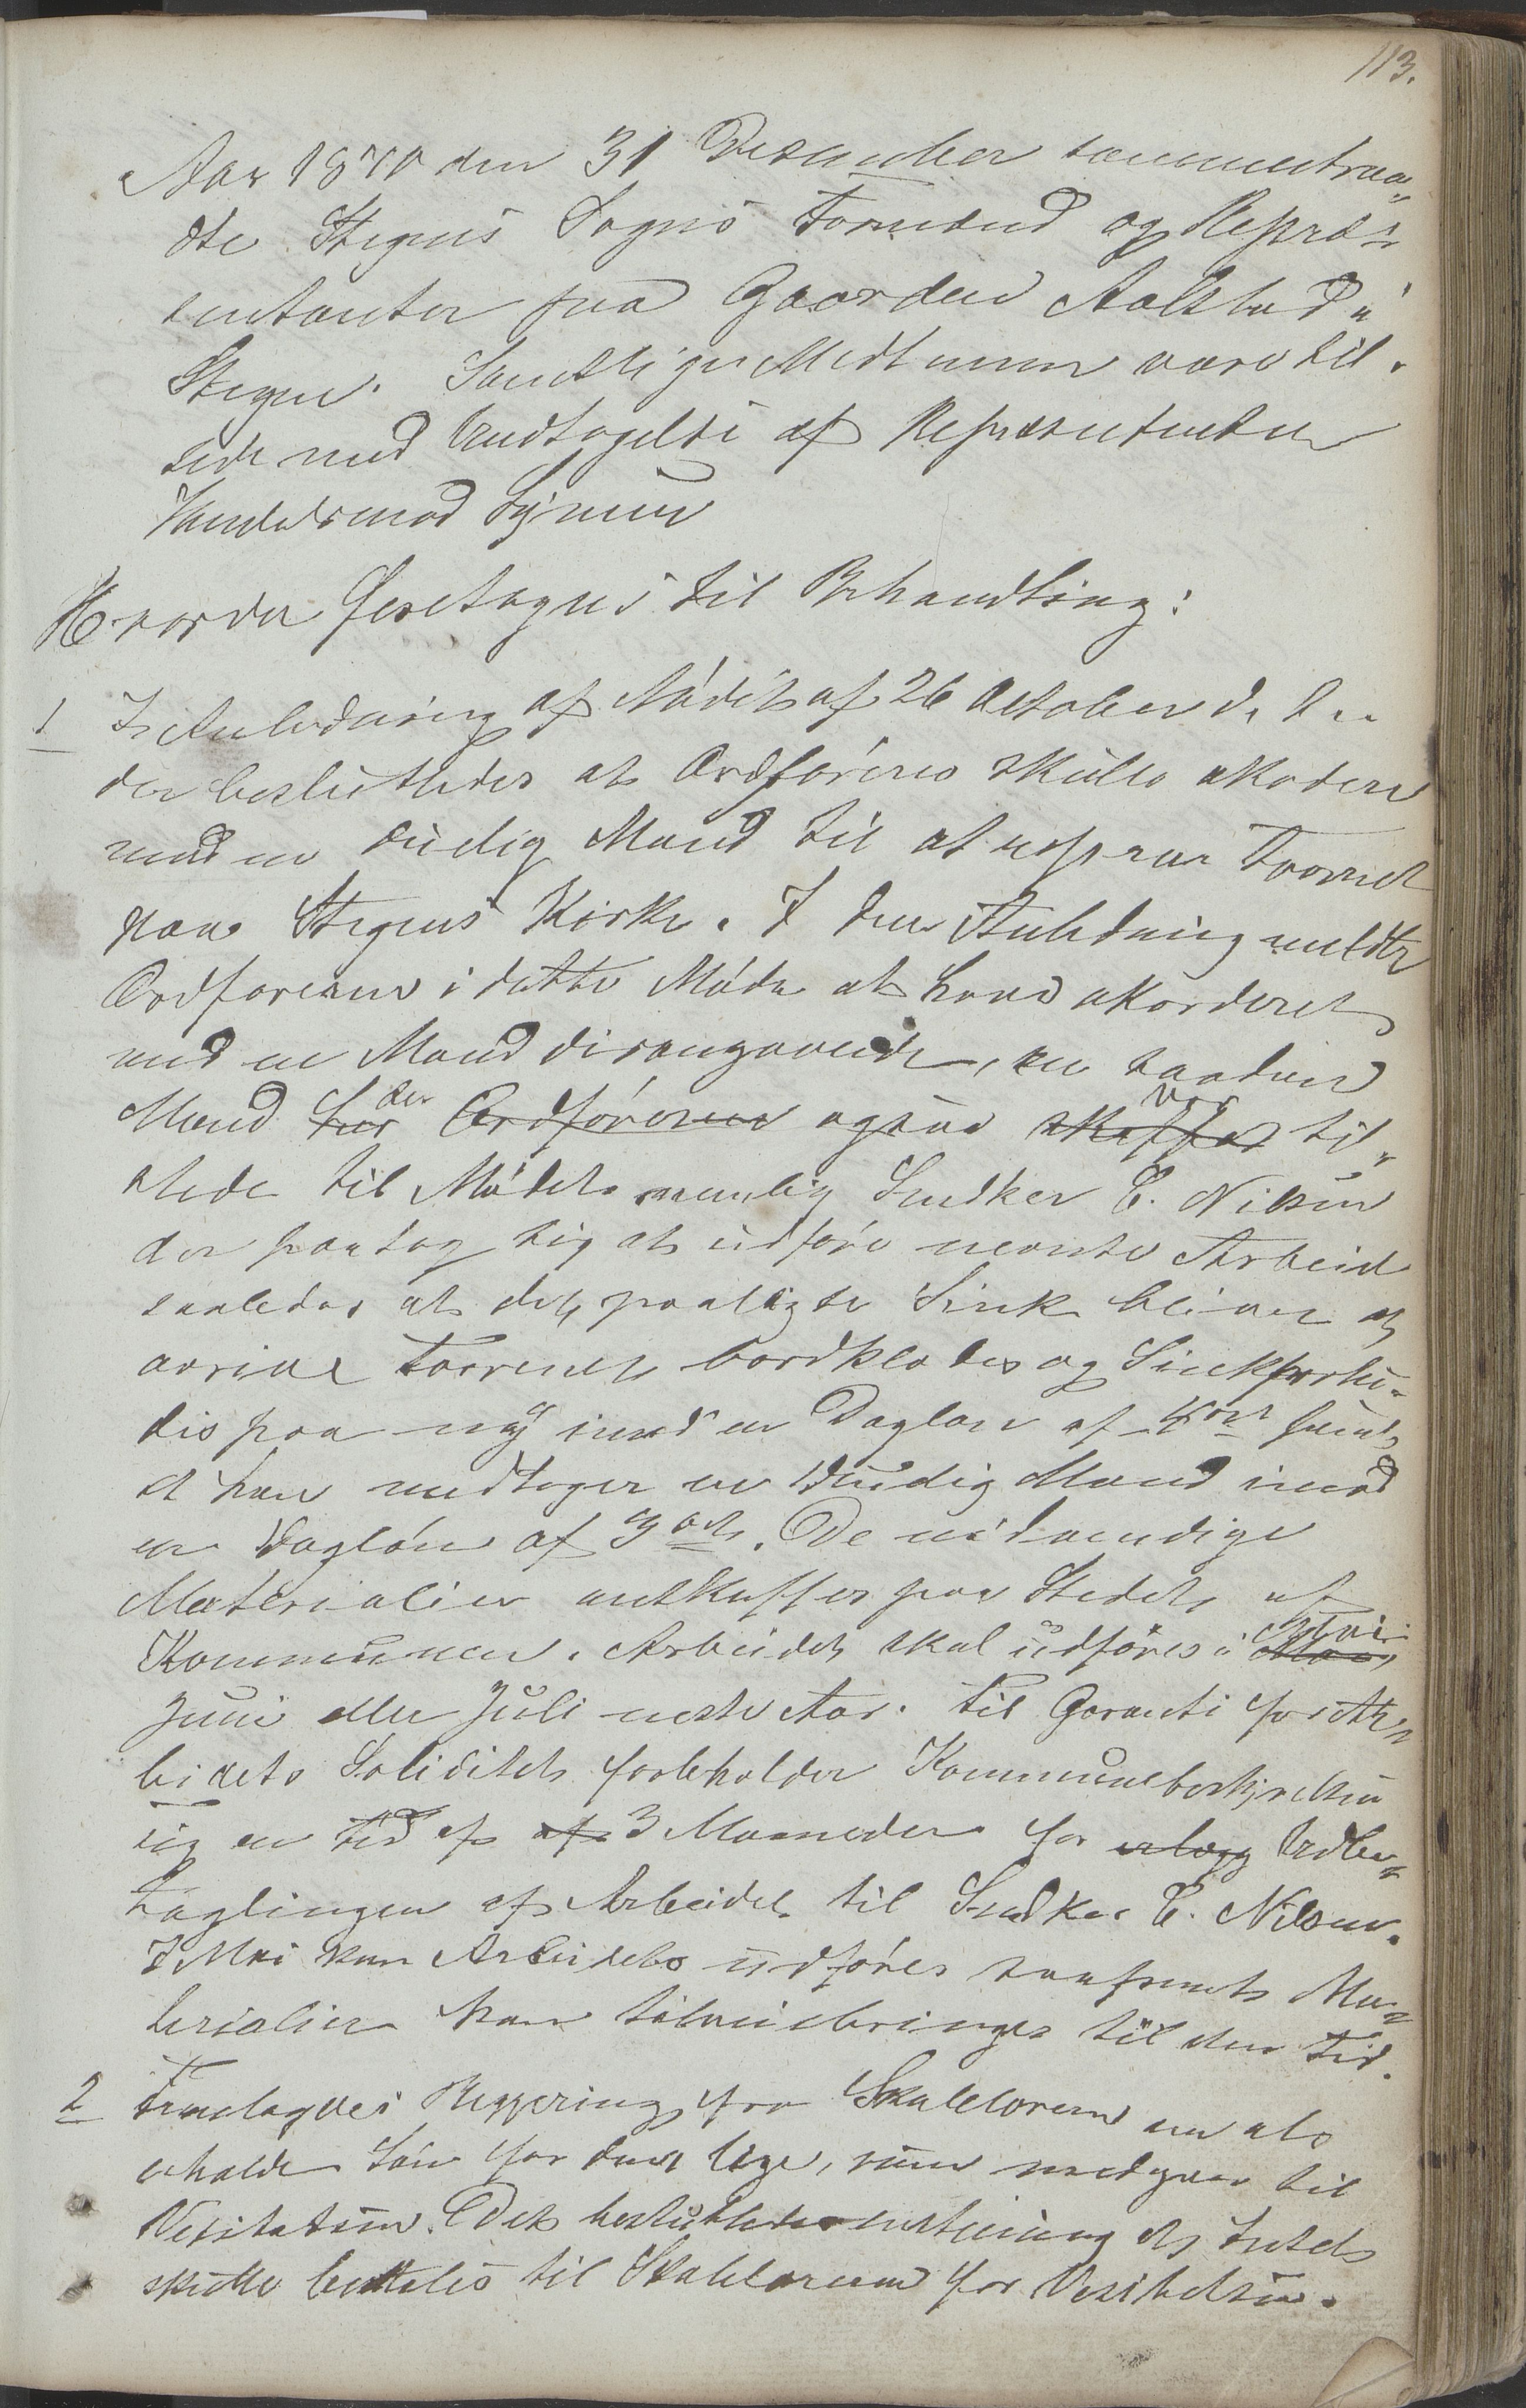 113.
Aar 1870 den 31 Desember sammentraa„
dte Stegens Sogns Formænd og Repræs„
entanter paa Gaarden Aalstad i
Stegen. Samtlige Medlemmer vare til„
stede med Undtagelse af Repræsentanten
Andersmod Symes
Hvorda foretoges til Behandling:
1 I Anledning af Mødet af 26 October d. A.
der besluttedes at Ordføreren skulle akordere
med en duelig Mand til at reparere Taarnet
paa Stegens Kirke. I den Anledning meldte
Ordføreren i dette Møde at have akorderet
med en Mand disangaaende, en saadan
Mand har der Ordføreren ogsaa skaffet var til„
stede til Mødet nemlig Snedker E. Nilsen
der paatog sig at udføre nævnte Arbeide
saaledes at det paalagte Sink bliver at
avrive Taarnet bordklædes og Sinkforhu„
des paa ny imod en Dagløn af 4 ort samt
at han medtager en duelig Mand imod
en Dagløn af 3 ort. De nødvendige
Materialier anskaffes paa Stedet af
Kommunen. Arbeidet skal udføres i Mai,
Juni eller Juli næste Aar. Til Garanti for Ar„
beidets Soliditet forbeholder Kommunebestyrelsen
sig en Tid af af 3 Maaneder for erlægg Udbe„
taglingen af Arbeidet til Snedker E. Nilsen.
I Mai kan Arbeidet udføres saafremt Ma„
terialier kan tilveiebringes til den Tid.
2 Fremlagdes Begjering fra Skolelæreren om at
erholde Løn for den Uge, som medgaar til
Visitatsen. Det besluttedes enstemmig at Intet
skulle bettales til Skolelæreren for Visitatsen.